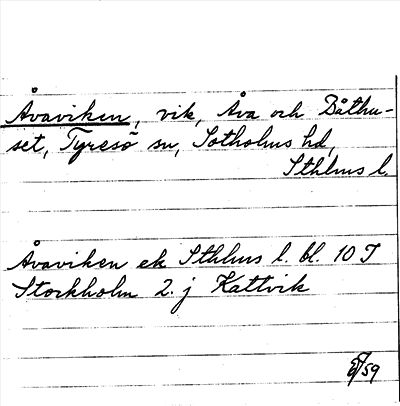 Åvaviken, vik, Åva och Båthu-
set, Tyresö sn, Sotholms hd,
Sthlms l.
Åvaviken ek Sthlms l. bl. 10 I
Stockholm 2. j Kattvik
59